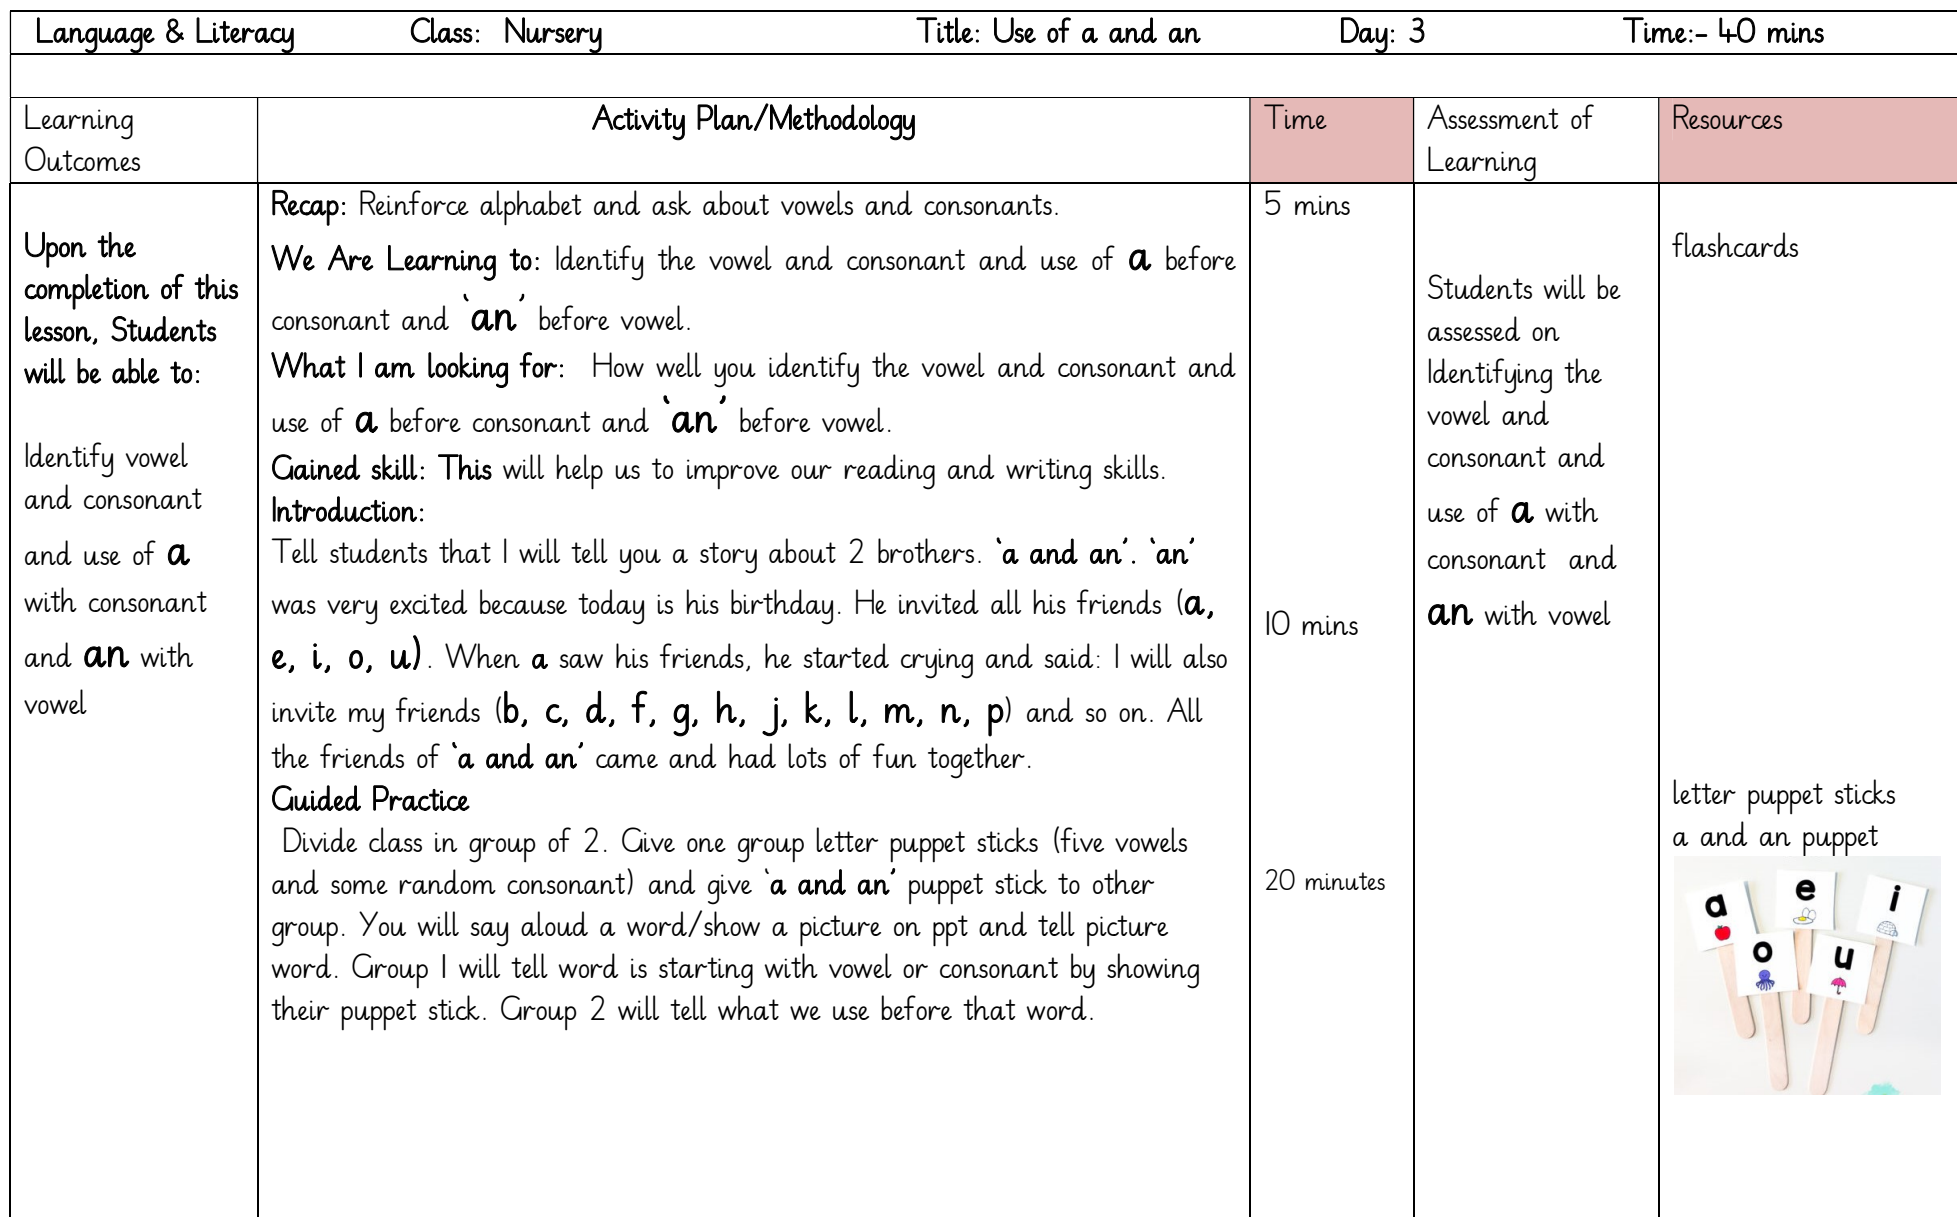 Language & Literacy Class: Nursery Title: Use of a and an Day: 3 Time:- 40 mins
Learning
Outcomes
Activity Plan/Methodology
Time
Assessment of
Learning
Resources
Upon the
completion of this
lesson, Students
will be able to:
Identify vowel
and consonant
and use of a
with consonant
and an with
vowel
Recap: Reinforce alphabet and ask about vowels and consonants.
We Are Learning to: Identify the vowel and consonant and use of a before
consonant and ‘an’ before vowel.
What I am looking for: How well you identify the vowel and consonant and
use of a before consonant and ‘an’ before vowel.
Gained skill: This will help us to improve our reading and writing skills.
Introduction:
Tell students that I will tell you a story about 2 brothers. ‘a and an’. ‘an’
was very excited because today is his birthday. He invited all his friends (a,
e, i, o, u). When a saw his friends, he started crying and said: I will also
invite my friends (b, c, d, f, g, h, j, k, l, m, n, p) and so on. All
the friends of ‘a and an’ came and had lots of fun together.
Guided Practice
Divide class in group of 2. Give one group letter puppet sticks (five vowels
and some random consonant) and give ‘a and an’ puppet stick to other
group. You will say aloud a word/show a picture on ppt and tell picture
word. Group 1 will tell word is starting with vowel or consonant by showing
their puppet stick. Group 2 will tell what we use before that word.
5 mins
10 mins
20 minutes
Students will be
assessed on
Identifying the
vowel and
consonant and
use of a with
consonant and
an with vowel
flashcards
letter puppet sticks
a and an puppet
a
e
i
o
u